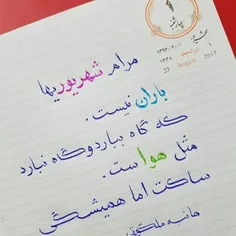 ۱
چهارشنبه
۱۳۹۶/۰۶/۰۱
۱۴۳۸
23 August 2017
مرام شهریوریها
باران نیست،
که گاه ببارد و گاه نبارد
مثل هوا ست.
ساکت اما همیشگی
ملکوتی